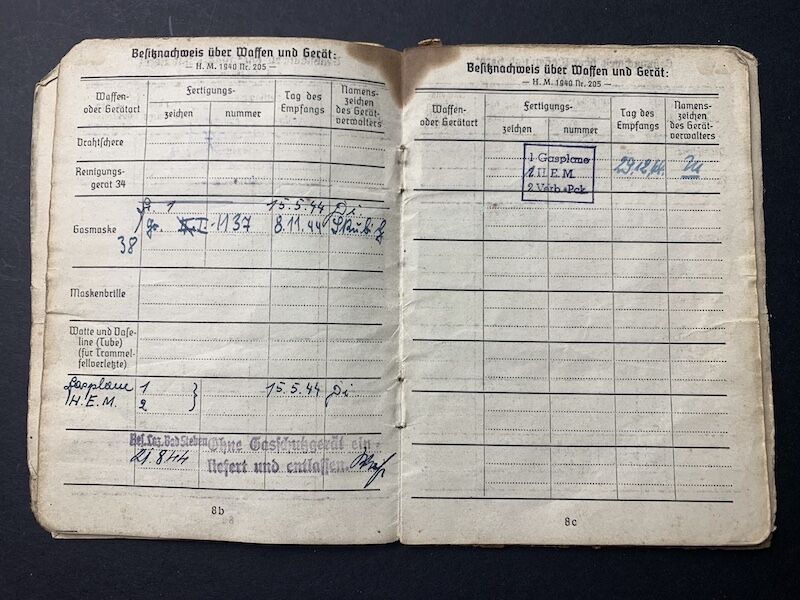 Besitznachweis über Waffen und Gerät:
— H. M. 1940 Nr. 205 —
Waffen- oder Gerätart
Fertigungs-
zeichen
nummer
Tag des Empfangs
Namens-zeichen des Gerät-verwalters
Drahtschere
Reinigungs-
gerät 34
1 15.5.44 Di
Gasmaske gr. 1137 8.11.44
38
Maskenbrille
Watte und Vase-
line (Tube)
(für Trommel-
fellverletzte)
Gasplane 1 15.5.44 Di
H.E.M. 2
Res. Laz. Bad Steben Ohne Gasschutzgerät ein-
21.8.44 liefert und entlassen.
8b
Besitznachweis über Waffen und Gerät:
— H. M. 1940 Nr. 205 —
Waffen- oder Gerätart
Fertigungs-
zeichen
nummer
Tag des Empfangs
Namens-zeichen des Gerät-verwalters
1 Gasplane
H.E.M. 29.12.44
2 Verb.-Pck.
8c